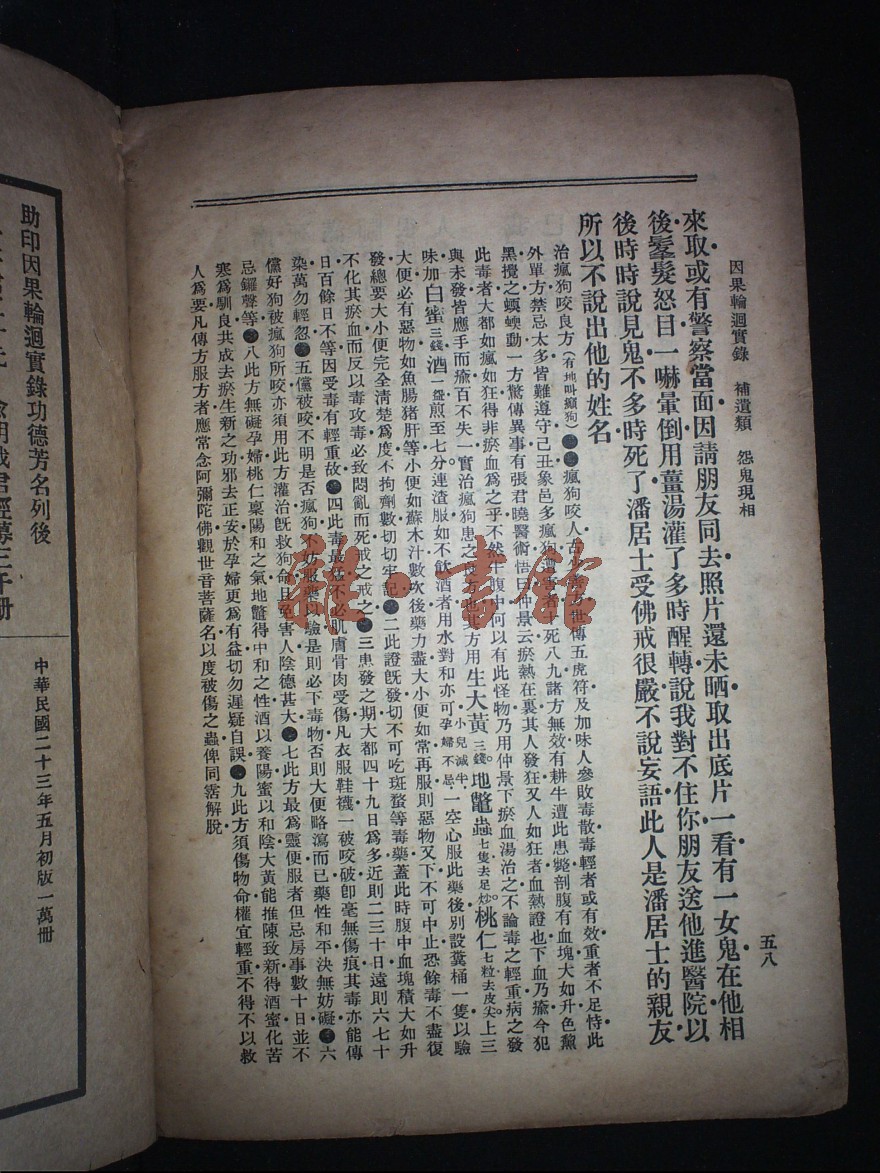 因果輪迴實錄　補遺類　怨鬼現相
五八
來取或有警察當面因請朋友同去照片還未晒取出底片一看有一女鬼在他相
後鬆髮怒目一嚇暈倒用薑湯灌了多時醒轉說我對不住你朋友送他進醫院以
後時時說見鬼不多時死了潘居士受佛戒很嚴不說妄語此人是潘居士的親友
所以不說出他的姓名
治瘋狗咬良方（有地叫癲狗）瘋狗咬人古
世傳五虎符及加味人參敗毒散毒輕者或有效重者不足恃此
外單方禁忌太多皆難遵守己丑象邑多瘋狗
死八九諸方無效有耕牛遭此患斃剖腹有血塊大如升色黧
黑攪之蝡蝡動一方驚傳異事有張君曉醫術悟曰仲景云瘀熱在裏其人發狂又人如狂者血熱證也下血乃癒今犯
此毒者大都如瘋如狂得非瘀血爲之乎不然牛腹中何以有此怪物乃用仲景下瘀血湯治之不論毒之輕重病之發
與未發皆應手而癒百不失一實治瘋狗患之
方也其方用生大黃三錢。地鼈蟲七隻去足炒。桃仁七粒去皮尖。上三
味加白蜜三錢酒一盌煎至七分連渣服如不飲酒者用水對和亦可小兒減半孕婦不忌一空心服此藥後別設糞桶一隻以驗
大便必有惡物如魚腸猪肝等小便如蘇木汁數次後藥力盡大小便如常再服則惡物又下不可中止恐餘毒不盡復
發總要大小便完全清楚爲度不拘劑數切切牢記二此證旣發切不可吃斑蝥等毒藥蓋此時腹中血塊積大如升
不化其瘀血而反以毒攻毒必致悶亂而死戒之戒之三患發之期大都四十九日爲多近則二三十日遠則六七十
日百餘日不等因受毒有輕重故四此毒最
不必肌膚骨肉受傷凡衣服鞋襪一被咬破卽毫無傷痕其毒亦能傳
染萬勿輕忽五儻被咬不明是否瘋狗不妨服藥以驗是則必下毒物否則大便略瀉而已藥性和平決無妨礙六
儻好狗被瘋狗所咬亦須用此方灌治旣救狗命且免害人陰德甚大七此方最爲靈便服者但忌房事數十日並不
忌鑼聲等八此方無礙孕婦桃仁稟陽和之氣地鼈得中和之性酒以養陽蜜以和陰大黃能推陳致新得酒蜜化苦
寒爲馴良共成去瘀生新之功邪去正安於孕婦更爲有益切勿遲疑自誤九此方須傷物命權宜輕重不得不以救
人爲要凡傳方服方者應常念阿彌陀佛觀世音菩薩名以度被傷之蟲俾同霑解脫
助印因果輪迴實錄功德芳名列後
中華民國二十三年五月初版一萬冊
雜·書館